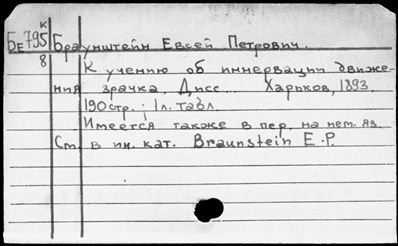 К
БЕ 795 Браунштейн Евсей Петрович.
8 К учению об иннервации движе-
ния зрачка. Дисс. Харьков, 1893
190 стр.; 1 л. табл.
Имеется также в пер. на нем. яз.
Ст. в ин. кат. Braunstein E.P.